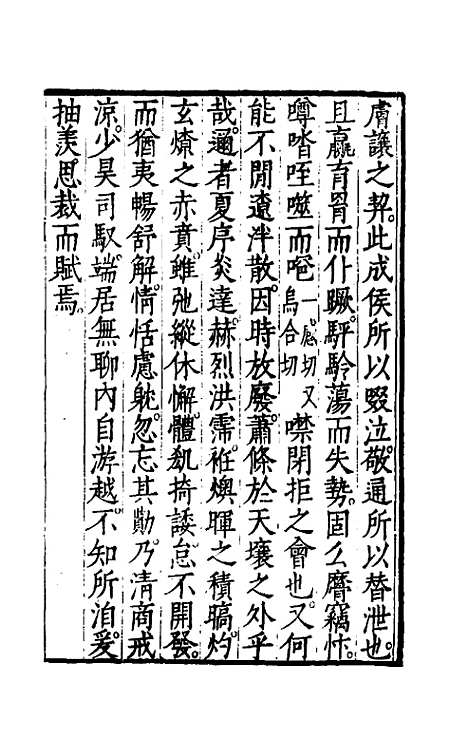 膚讓之契。此成侯所以啜泣。敬通所以替泄也。
且羸育胃而仆蹶。駍駖蕩而失勢。固么麿竊忭。
噂喈咥噬而唈一感切又烏合切噤閉拒之會也。又何
能不閒遠泮散。因時放廢。蕭條於天壤之外乎
哉。邇者夏序炎達。赫烈洪霈。袵燠暉之積暠灼。
玄燎之赤賁。雖弛縱休懈。體飢掎諉怠。不開發。
而猶夷暢舒解。情恬慮躭。忽忘其勩。乃清商戒
涼。少昊司馭。端居無聊。內自游越。不知所洎。爰
抽羡思。裁而賦焉。